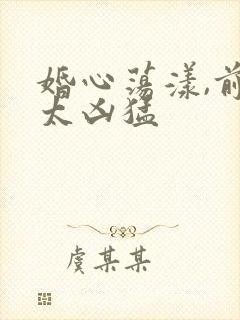 婚心荡漾,前
太凶猛
虞某某